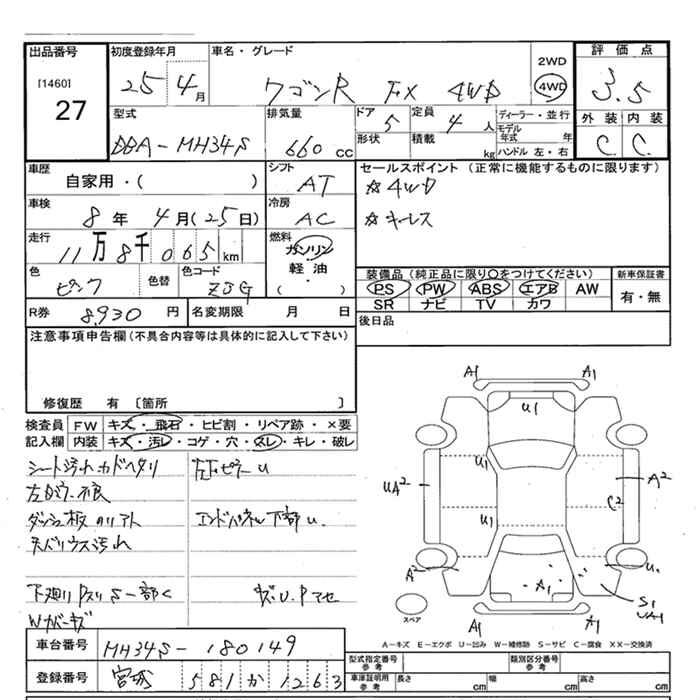 出品番号 初度登録年月 車名・グレード 評価点
[1460] 27
25 4月 ワゴンR FX 4WD 2WD 4WD 3.5
型式 排気量 ドア 定員 ディーラー・並行 外装 内装
DBA-MH34S 660cc 5 4人 モデル年式 年 C C
形状 積載 kg ハンドル 左・右
車歴 シフト セールスポイント (正常に機能するものに限ります)
自家用・( ) AT ☆4WD
車検 冷房 ☆キーレス
8年 4月(25日) AC
走行 燃料
11万8千065km ガソリン
軽油
・
( )
色 色替 色コード 装備品(純正品に限り○をつけてください) 新車保証書
ピンク ZJG PS PW ABS エアB AW 有・無
SR ナビ TV カワ
R券 8,930円 名変期限 月 日 後日品
注意事項申告欄(不具合内容等は具体的に記入して下さい)
修復歴 有 〔箇所 〕
検査員 FW キズ・飛石・ヒビ割・リペア跡・×要
記入欄 内装 キズ・汚レ・コゲ・穴・スレ・キレ・破レ
シート汚れ カドヘタリ 左Bピラー U
ダッシュ板 エンドパネル下部 U.
汚れ
下廻り S一部く
Wカバーキズ
A1 A1
U1
U1
UA2 A2
C2
U1
A2 U.
A1
S1
UA1
A1 A1
スペア
A-キズ E-エクボ U-凹み W-補修跡 S-サビ C-腐食 XX-交換済
車台番号 MH34S-180149
登録番号 宮城 581か1263
型式指定番号 参考 類別区分番号 参考
車庫証明用 参考 長さ cm 幅 cm 高さ cm